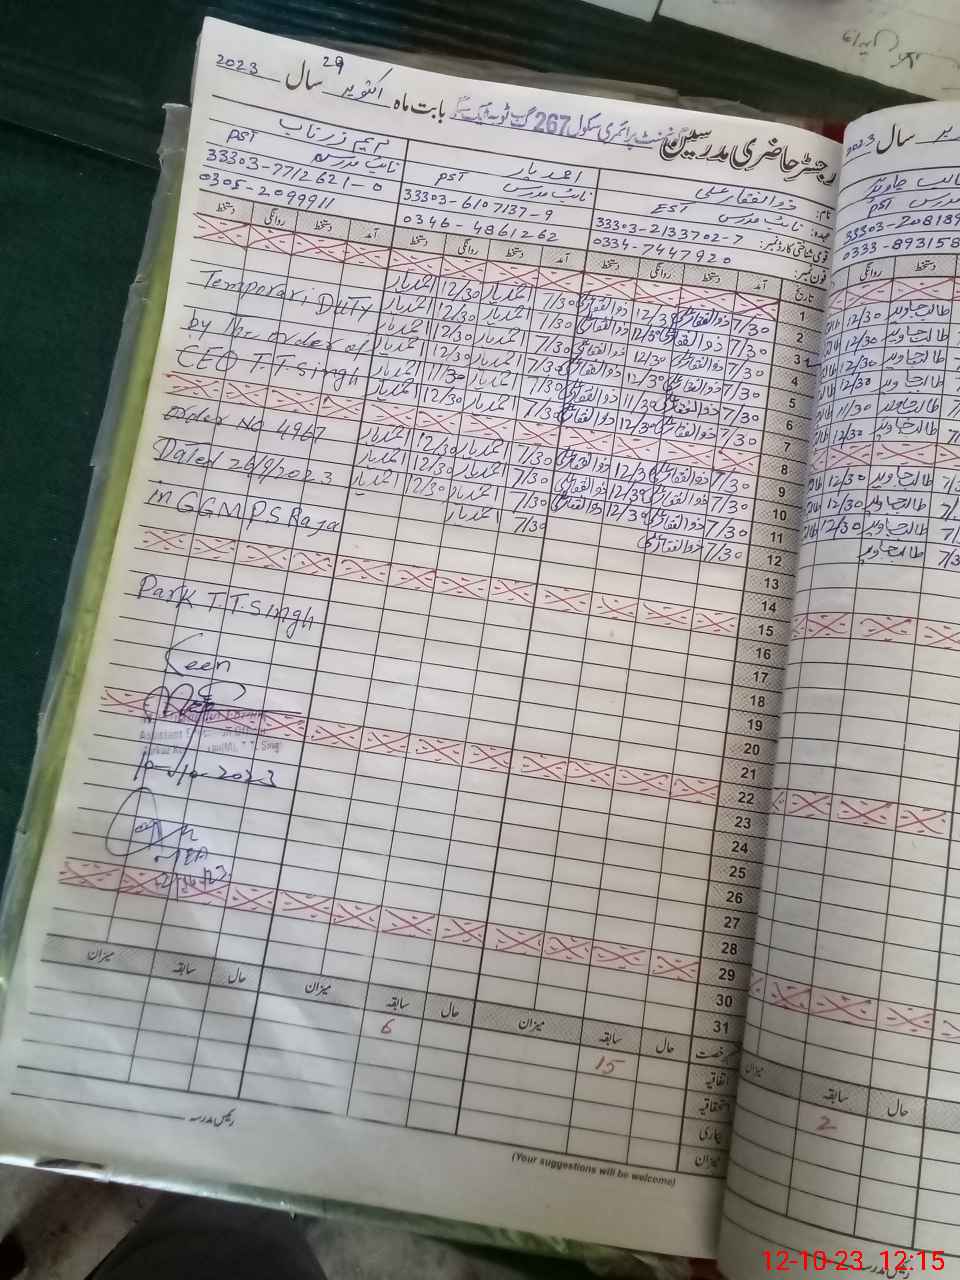 رجسٹر حاضری مدرسین گورنمنٹ پرائمری سکول 267 گ ب ٹوبہ ٹیک سنگھ بابت ماہ اکتوبر سال 2023
29
نام: ذوالفقار علی
احمد یار
عہدہ: نائب مدرس EST
نائب مدرس PST
نائب مدرس PST
قومی شناختی کارڈ نمبر: 33303-2133702-7
33303-6107137-9
33303-7712621-0
فون نمبر: 0334-7447920
0346-4861262
0305-2099911
تاریخ آمد دستخط روانگی دستخط آمد دستخط روانگی دستخط آمد دستخط روانگی دستخط
1
2 7/30 ذوالفقار علی 12/30 ذوالفقار علی 7/30 احمد یار 12/30 احمد یار
3 7/30 ذوالفقار علی 12/30 ذوالفقار علی 7/30 احمد یار 12/30 احمد یار
4 7/30 ذوالفقار علی 12/30 ذوالفقار علی 7/30 احمد یار 12/30 احمد یار
5 7/30 ذوالفقار علی 12/30 ذوالفقار علی 7/30 احمد یار 12/30 احمد یار
6 7/30 ذوالفقار علی 11/30 ذوالفقار علی 7/30 احمد یار 11/30 احمد یار
7 7/30 ذوالفقار علی 12/30 ذوالفقار علی 7/30 احمد یار 12/30 احمد یار
8
9 7/30 ذوالفقار علی 12/30 ذوالفقار علی 7/30 احمد یار 12/30 احمد یار
10 7/30 ذوالفقار علی 12/30 ذوالفقار علی 7/30 احمد یار 12/30 احمد یار
11 7/30 ذوالفقار علی 12/30 ذوالفقار علی 7/30 احمد یار 12/30 احمد یار
12 7/30 ذوالفقار علی 7/30 احمد یار
13
14
15
16
17
18
19
20
21
22
23
24
25
26
27
28
29
30
31
Temporari DUTY
by the order of
CEO T.T Singh
order No 4967
Dated 26/9/2023
in GGMPS Raja
Park T.T.Singh
Seen
10-10-2023
رخصت حال سابقہ میزان حال سابقہ میزان حال سابقہ میزان
اتفاقیہ 15 6
استحقاقیہ
بیماری
میزان
رئیس مدرسہ
(Your suggestions will be welcome)
سال 2023
طالب جاوید
مدرس PST
0333-89315
دستخط روانگی
طالب جاوید 12/30
طالب جاوید 12/30
طالب جاوید 12/30
طالب جاوید 12/30
طالب جاوید 11/30
طالب جاوید 12/30
طالب جاوید 12/30
طالب جاوید 12/30
طالب جاوید 12/30
7/30 طالب جاوید
حال سابقہ میزان
2
رئیس مدرسہ
12-10-23 12:15